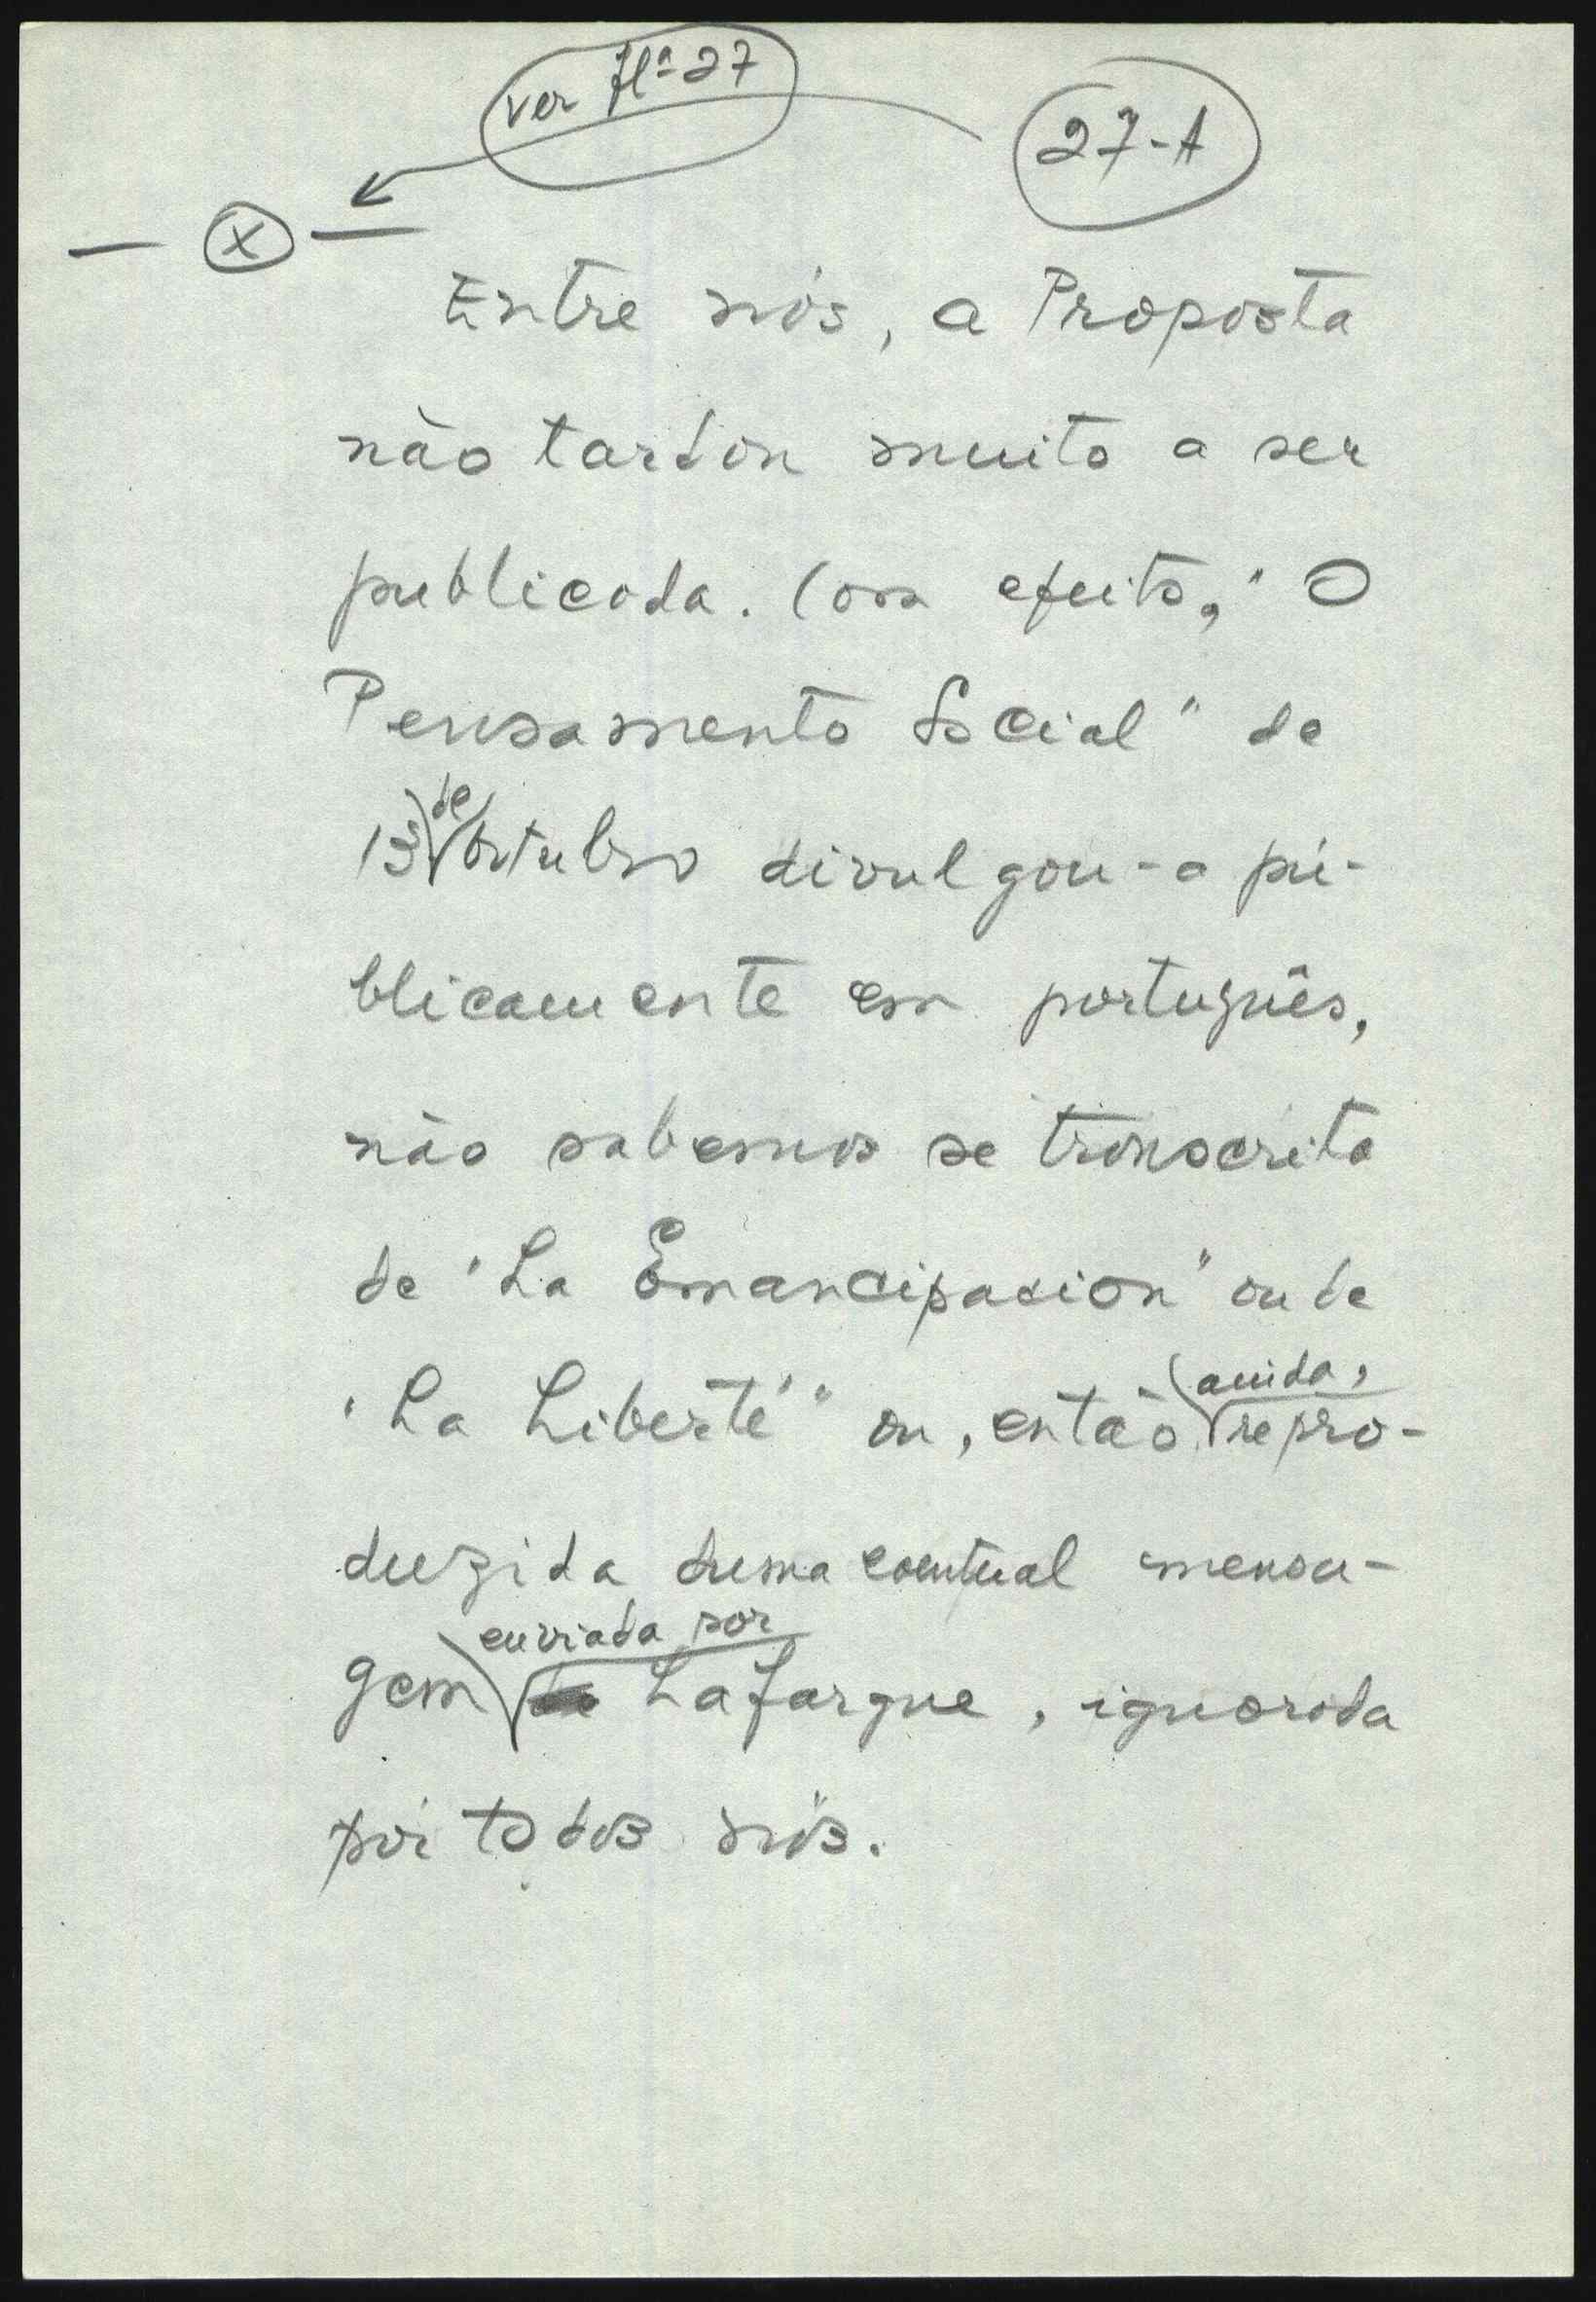 ver flª 27
27-A
— X —
Entre nós, a Proposta
não tardou muito a ser
publicada. Com efeito, "O
Pensamento Social" de
13 de Outubro divulgou-a pú-
blicamente em português,
não sabemos se transcrita
de "La Emancipacion" ou de
"La Liberté" ou, então ainda, repro-
duzida duma eventual mensa-
gem enviada por Lafargue, ignorada
por todos nós.